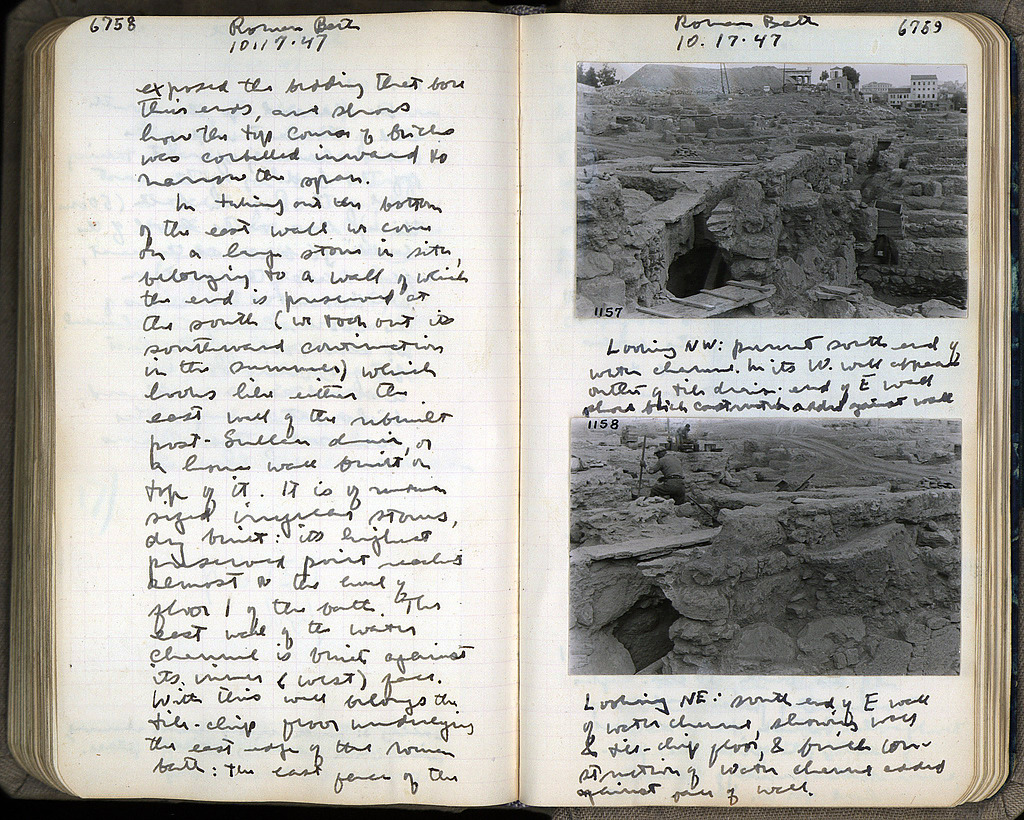 6758
Roman Bath
10.17.47
exposed the bedding that bore
this, and shows
how the top course of bricks
was corbelled inward to
narrow the span.
In taking out the bottom
of the east wall we come
on a large stone in situ,
belonging to a wall of which
the end is preserved at
the south (we took out its
southward continuation
in the summer) which
looks like either the
east wall of the rebuilt
post-Sullan drain, or
a house wall built on
top of it. It is of medium
sized irregular stones,
dry built: its highest
preserved point reaches
almost to the level of
floor 1 of the bath. The
east wall of the water
channel is built against
its inner (west) face.
With this wall belongs the
tile-chip floor underlying
the east edge of the Roman
bath: the east face of the
6759
Roman Bath
10.17.47
1157
Looking NW: present south end of
water channel. In its W. wall appears
outlet of tile drain: end of E wall
shows brick construction added against wall
1158
Looking NE: south end of E wall
of water channel, showing wall
& tile-chip floor, & brick con-
struction of water channel added
against face of wall.